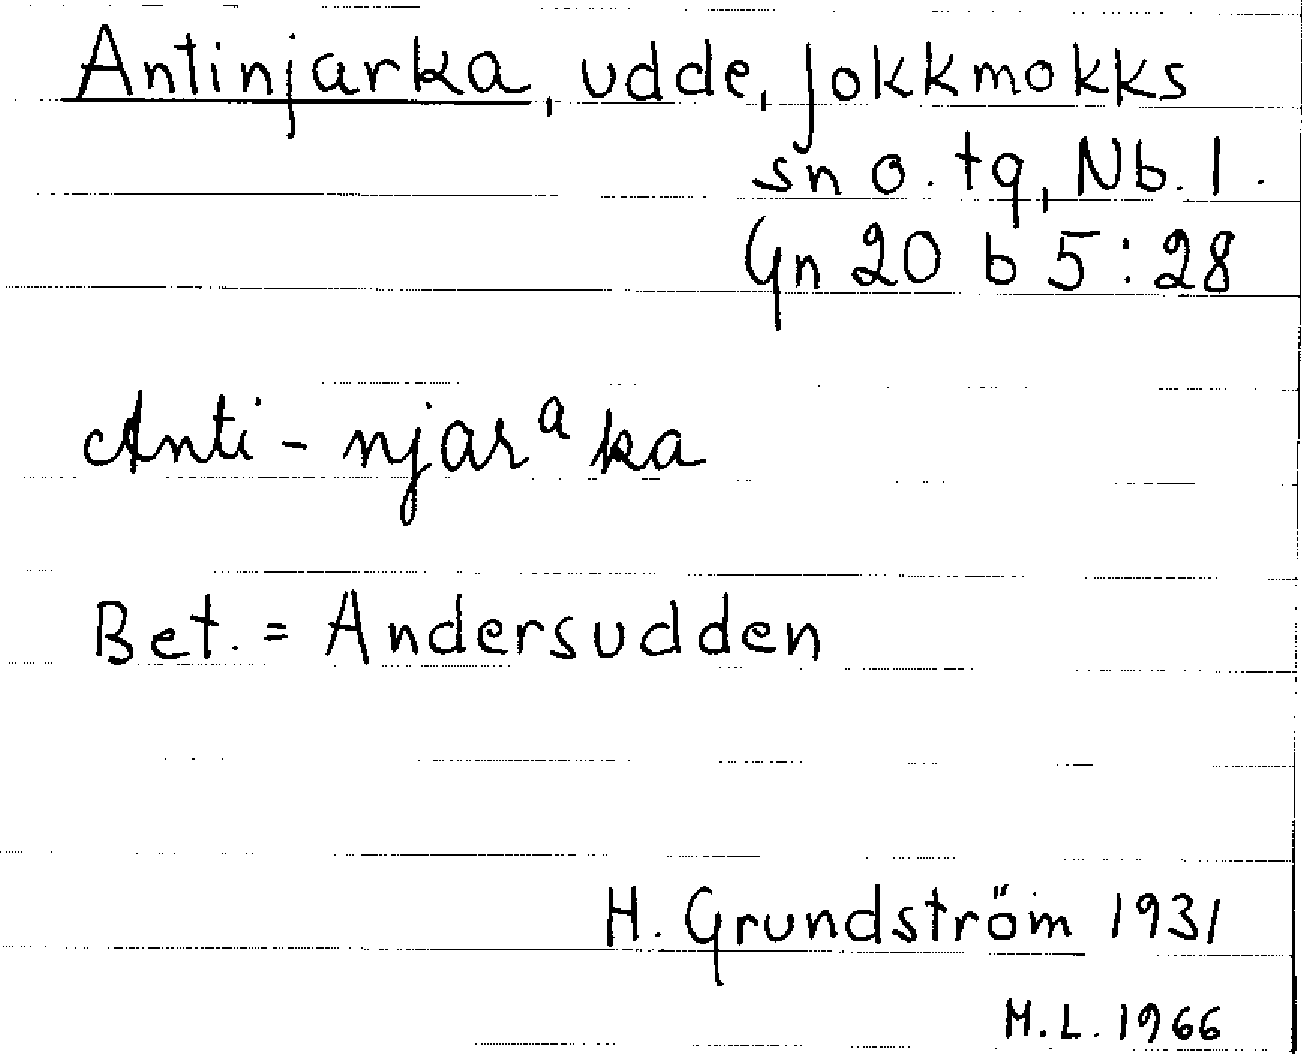 Antinjarka, udde, Jokkmokks
sn o. tg, Nb. l.
Gn 20 b 5:28
Anti-njarᵃka
Bet. = Andersudden
H. Grundström 1931
M.L. 1966